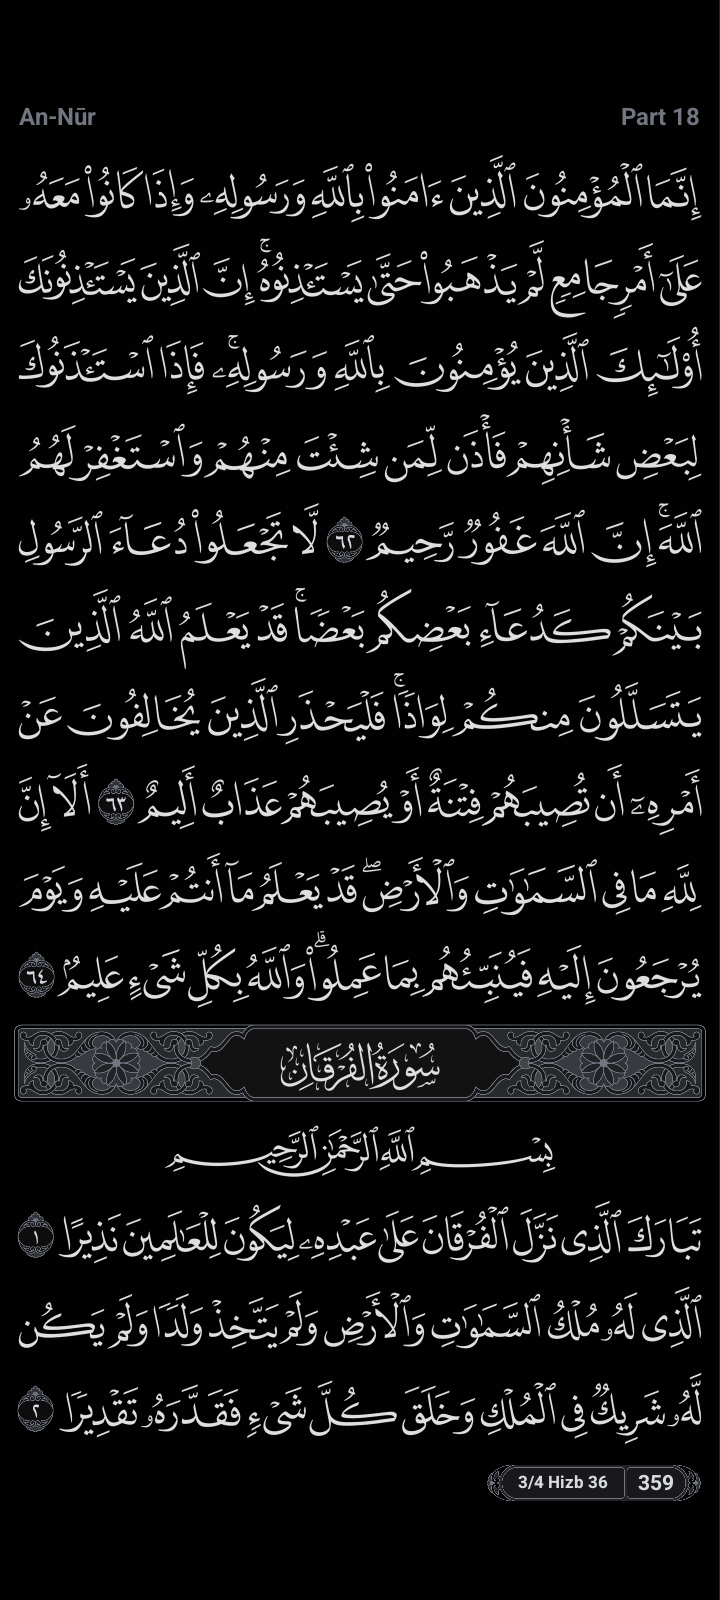 An-Nūr Part 18
إِنَّمَا ٱلۡمُؤۡمِنُونَ ٱلَّذِينَ ءَامَنُواْ بِٱللَّهِ وَرَسُولِهِۦ وَإِذَا كَانُواْ مَعَهُۥ
عَلَىٰٓ أَمۡرٖ جَامِعٖ لَّمۡ يَذۡهَبُواْ حَتَّىٰ يَسۡتَـٔۡذِنُوهُۚ إِنَّ ٱلَّذِينَ يَسۡتَـٔۡذِنُونَكَ
أُوْلَـٰٓئِكَ ٱلَّذِينَ يُؤۡمِنُونَ بِٱللَّهِ وَرَسُولِهِۦۚ فَإِذَا ٱسۡتَـٔۡذَنُوكَ
لِبَعۡضِ شَأۡنِهِمۡ فَأۡذَن لِّمَن شِئۡتَ مِنۡهُمۡ وَٱسۡتَغۡفِرۡ لَهُمُ
ٱللَّهَۚ إِنَّ ٱللَّهَ غَفُورٞ رَّحِيمٞ ٦٢ لَّا تَجۡعَلُواْ دُعَآءَ ٱلرَّسُولِ
بَيۡنَكُمۡ كَدُعَآءِ بَعۡضِكُم بَعۡضٗاۚ قَدۡ يَعۡلَمُ ٱللَّهُ ٱلَّذِينَ
يَتَسَلَّلُونَ مِنكُمۡ لِوَاذٗاۚ فَلۡيَحۡذَرِ ٱلَّذِينَ يُخَالِفُونَ عَنۡ
أَمۡرِهِۦٓ أَن تُصِيبَهُمۡ فِتۡنَةٌ أَوۡ يُصِيبَهُمۡ عَذَابٌ أَلِيمٌ ٦٣ أَلَآ إِنَّ
لِلَّهِ مَا فِي ٱلسَّمَٰوَٰتِ وَٱلۡأَرۡضِۖ قَدۡ يَعۡلَمُ مَآ أَنتُمۡ عَلَيۡهِ وَيَوۡمَ
يُرۡجَعُونَ إِلَيۡهِ فَيُنَبِّئُهُم بِمَا عَمِلُواْۗ وَٱللَّهُ بِكُلِّ شَيۡءٍ عَلِيمُۢ ٦٤
سُورَةُ الفُرۡقَانِ
بِسۡمِ ٱللَّهِ ٱلرَّحۡمَٰنِ ٱلرَّحِيمِ
تَبَارَكَ ٱلَّذِي نَزَّلَ ٱلۡفُرۡقَانَ عَلَىٰ عَبۡدِهِۦ لِيَكُونَ لِلۡعَٰلَمِينَ نَذِيرًا ١
ٱلَّذِي لَهُۥ مُلۡكُ ٱلسَّمَٰوَٰتِ وَٱلۡأَرۡضِ وَلَمۡ يَتَّخِذۡ وَلَدٗا وَلَمۡ يَكُن
لَّهُۥ شَرِيكٞ فِي ٱلۡمُلۡكِ وَخَلَقَ كُلَّ شَيۡءٖ فَقَدَّرَهُۥ تَقۡدِيرٗا ٢
3/4 Hizb 36 359